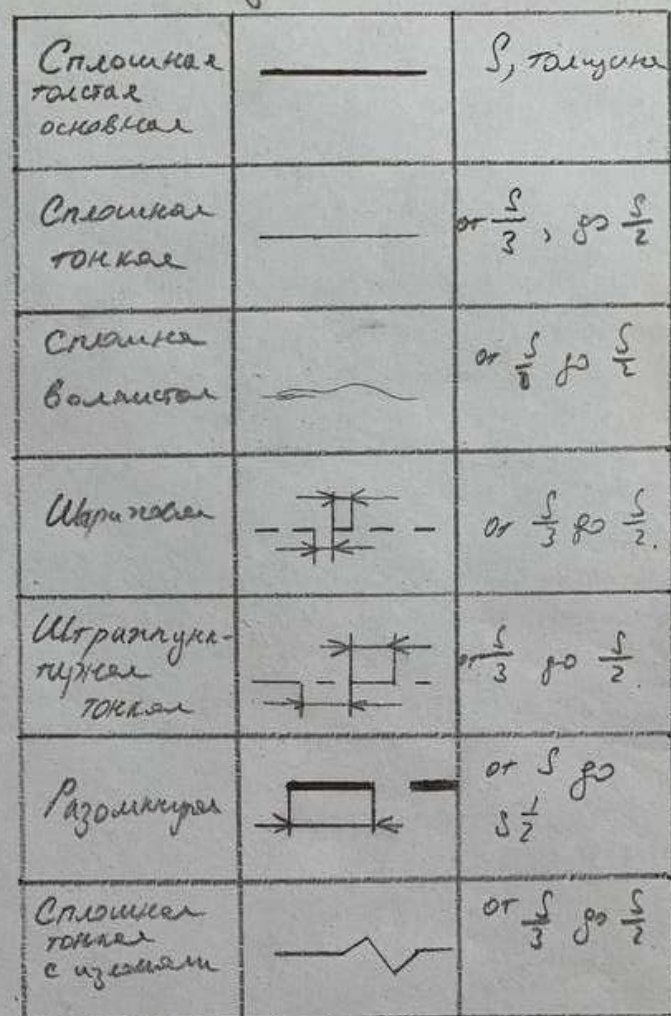 Сплошная
толстая
основная
S, толщина
Сплошная
тонкая
от S/3, до S/2
Сплошная
волнистая
от S/3 до S/2
Штриховая
от S/3 до S/2
Штрихпунк-
тирная
тонкая
от S/3 до S/2
Разомкнутая
от S до
S 1/2
Сплошная
тонкая
с изломами
от S/3 до S/2